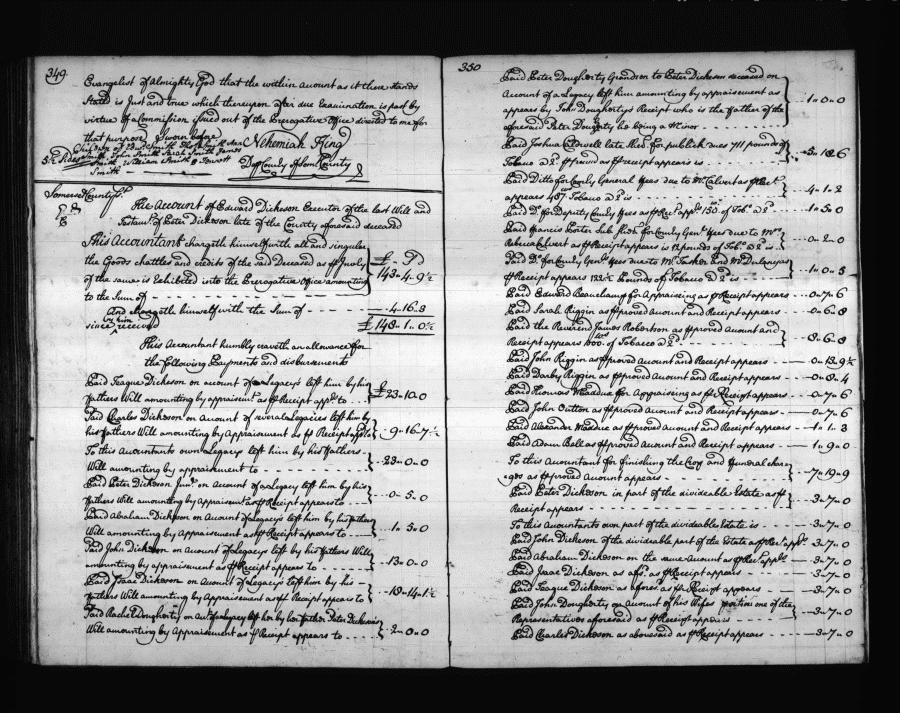 349
Evangelist of Almighty God that the within Account as it thus stands
Stated is Just and true which thereupon after due Examination is past by
virtue of a Commission issued out of the Prerogative Office directed to me for
that purpose Sworn before
Nehemiah King
Smith John Smith Sarah Smith James
Smith
Dep Com̃y of Som County
Somerset County Ss.
The Account of Edward Dickeson Executor of the last Will and
Testamt. of Peter Dickeson late of the County aforesaid deceased
This Accountant chargeth himself with all and singular
the Goods chattles and credits of the said Deceased as ℔ Inv'ly
of the same is Exhibited into the Prerogative Office amounting
to the Sum of
£ 143. 4. 9½
And chargeth himself with the Sum of 4.16.3
since received by him
£ 148. 1. 0½
This Accountant humbly craveth an allowance for
the following Payments and disbursements
Paid Teague Dickeson on account of Legacy's left him by his
fathers Will amounting by appraisemt as ℔ Receipt apprs. to £ 23.10.0
Paid Charles Dickeson on Amount of several Legacies left him by
his fathers Will amounting by Appraisement as ℔ Receipt apps. to 9.16.7½
To this Accountants own Legacy left him by his fathers
Will amounting by appraisement to 23.0.0
Paid Peter Dickeson Junr. on Account of a Legacy left him by his
fathers Will amounting by Appraisemt as ℔ Receipt appears to 0.5.0
Paid Abraham Dickeson on Amount of Legacy's left him by his father
Will amounting by Appraisement as ℔ Receipt appears to 1.5.0
Paid John Dickeson on Amount of Legacy's left by his fathers Will
amounting by appraisement as ℔ Receipt appears to 13.0.0
Paid Isaac Dickeson on Amount of Legacy's left him by his
fathers Will amounting by Appraisement as ℔ Receipt appears to 19.14.1½
Paid Rachel Dougherty on Acct. of a Legacy left her by her father Peter Dickeson's
Will amounting by Appraisement as ℔ Receipt appears to 2.0.0
350
Paid Peter Dougherty Grandson to Peter Dickeson deceased on
Account of a Legacy left him amounting by appraisement as
appears by John Dougherty's Receipt who is the father of the
aforesaid Peter Dougherty he being a Minor 1.0.0
Paid Joshua Caldwell late Shef. for publick dues 711 pounds of
Tobacco as ℔ prov'd as ℔ receipt appears is 5.18.6
Paid Ditto for Com̃y General ffees due to Mr. Calvert as ℔ Rect.
appears 487 of Tobacco is 4.1.2
Paid Do. for Deputy Com̃y ffees as ℔ Rect. apps. 150 of Tob. is 1.5.0
Paid Francis Porter Sub Shef. for Com̃y Genl. ffees due to Mrs.
Rebecca Calvert as ℔ Receipt appears is 12 pounds of Tob. is 0.2.0
Paid Do. for Com̃y Genl. ffees due to Mr. Tasker and Mr. Dulany as
℔ Receipt appears 122½ Pounds of Tobacco is 1.0.5
Paid Edward Beauchamp for Appraising as ℔ Receipt appears 0.7.6
Paid Sarah Riggin as ℔ proved Amount and Receipt appears 0.6.8
Paid the Reverend James Robertson as ℔ proved Amount and
Receipt appears 1000 of Tobacco is 8.6.8
Paid John Riggin as ℔ proved Amount and Receipt appears 0.13.9½
Paid Darby Riggin as ℔ proved Amount and Receipt appears 0.8.4
Paid Thomas Maddux for Appraising as ℔ Receipt appears 0.7.6
Paid John Outten as ℔ proved Amount and Receipt appears 0.7.6
Paid Alexander Maddux as ℔ proved Amount and Receipt appears 1.1.3
Paid Adam Bell as ℔ proved Amount and Receipt appears 1.9.0
To this Accountant for finishing the Crop and funeral char
ges as ℔ proved Amount appears 7.19.9
Paid Peter Dickeson in part of the divideable Estate as ℔
Receipt appears 3.7.0
To this Accountants own part of the divideable Estate is 3.7.0
Paid John Dickeson of the divideable part of the Estate as ℔ Rect. apps. 3.7.0
Paid Abraham Dickeson on the same Amount as ℔ Rect. apps. 3.7.0
Paid Isaac Dickeson as afsd. as ℔ Receipt appears 3.7.0
Paid Teague Dickeson as afores. as ℔ Receipt appears 3.7.0
Paid John Dougherty on Amount of his Wifes portion one of the
Representatives aforesaid as ℔ Receipt appears 3.7.0
Paid Charles Dickeson as abovesaid as ℔ Receipt appears 3.7.0